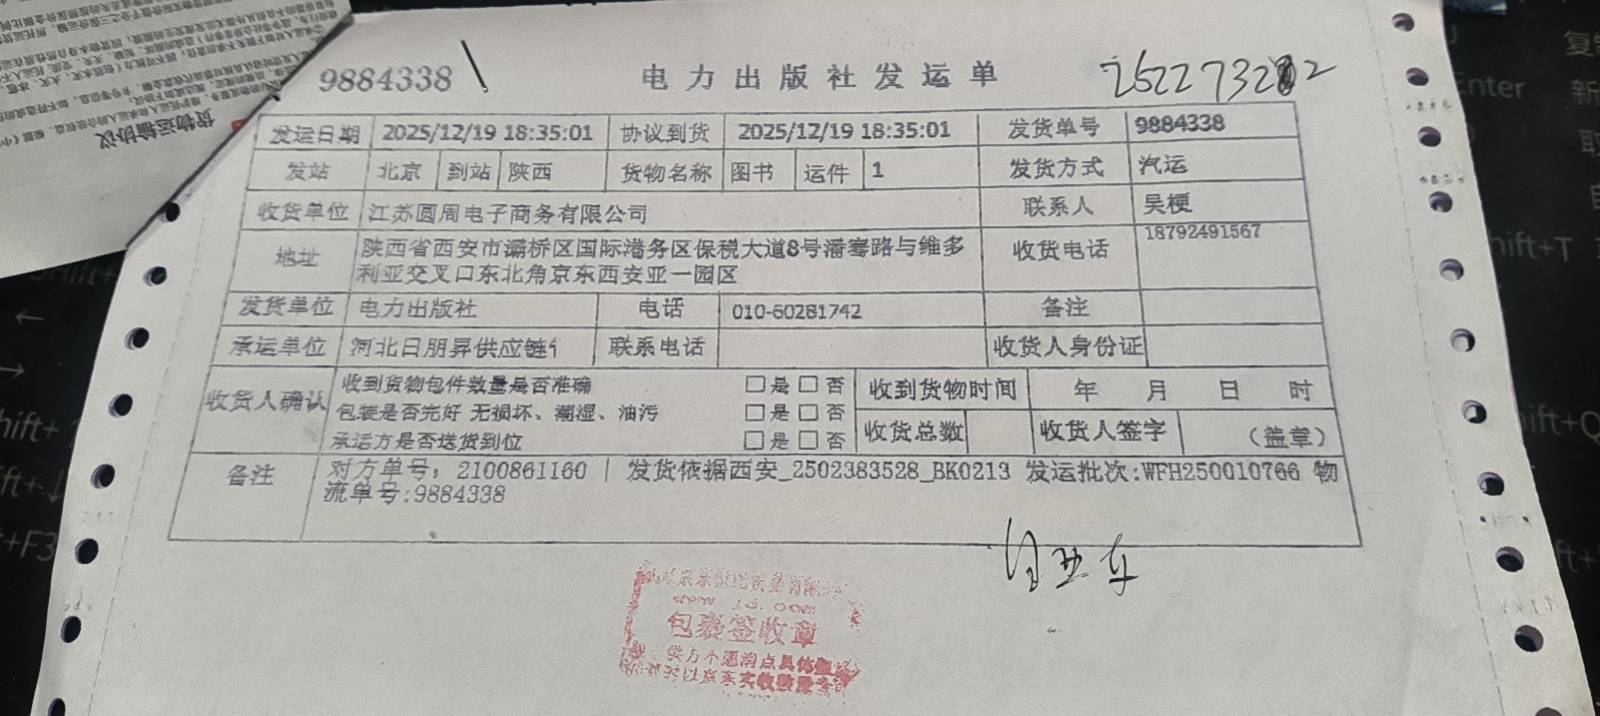 货物运输协议
9884338
电力出版社发运单
发运日期 2025/12/19 18:35:01 协议到货 2025/12/19 18:35:01 发货单号 9884338
发站 北京 到站 陕西 货物名称 图书 运件 1 发货方式 汽运
收货单位 江苏圆周电子商务有限公司 联系人 吴梗
地址 陕西省西安市灞桥区国际港务区保税大道8号潘骞路与维多
利亚交叉口东北角京东西安亚一园区
收货电话 18792491567
发货单位 电力出版社 电话 010-60281742 备注
承运单位 河北日朋昇供应链 联系电话 收货人身份证
收货人确认
收到货物包件数量是否准确 □是□否
包装是否完好 无损坏、潮湿、油污 □是□否
承运方是否送货到位 □是□否
收到货物时间 年 月 日 时
收货总数 收货人签字 (盖章)
备注 对方单号：2100861160 | 发货依据西安_2502383528_BK0213 发运批次:WFH250010766 物
流单号:9884338
包裹签收章